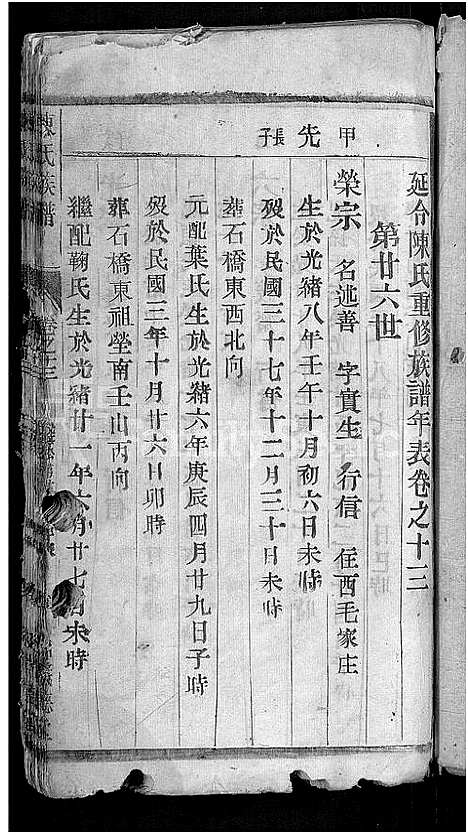 延令陳氏重修族譜年表卷之十三
第廿六世
甲先長子
榮宗 名述善 字實生 行信一 住西毛家庄
生於光緒八年壬午十月初六日未時
歿於民國三十七年十二月三十日未時
葬石橋東西北向
元配葉氏生於光緒六年庚辰四月廿九日子時
歿於民國三年十月廿六日卯時
葬石橋東祖塋南壬山丙向
繼配鞠氏生於光緒廿一年六月廿七日未時
陳氏族譜
卷之十三